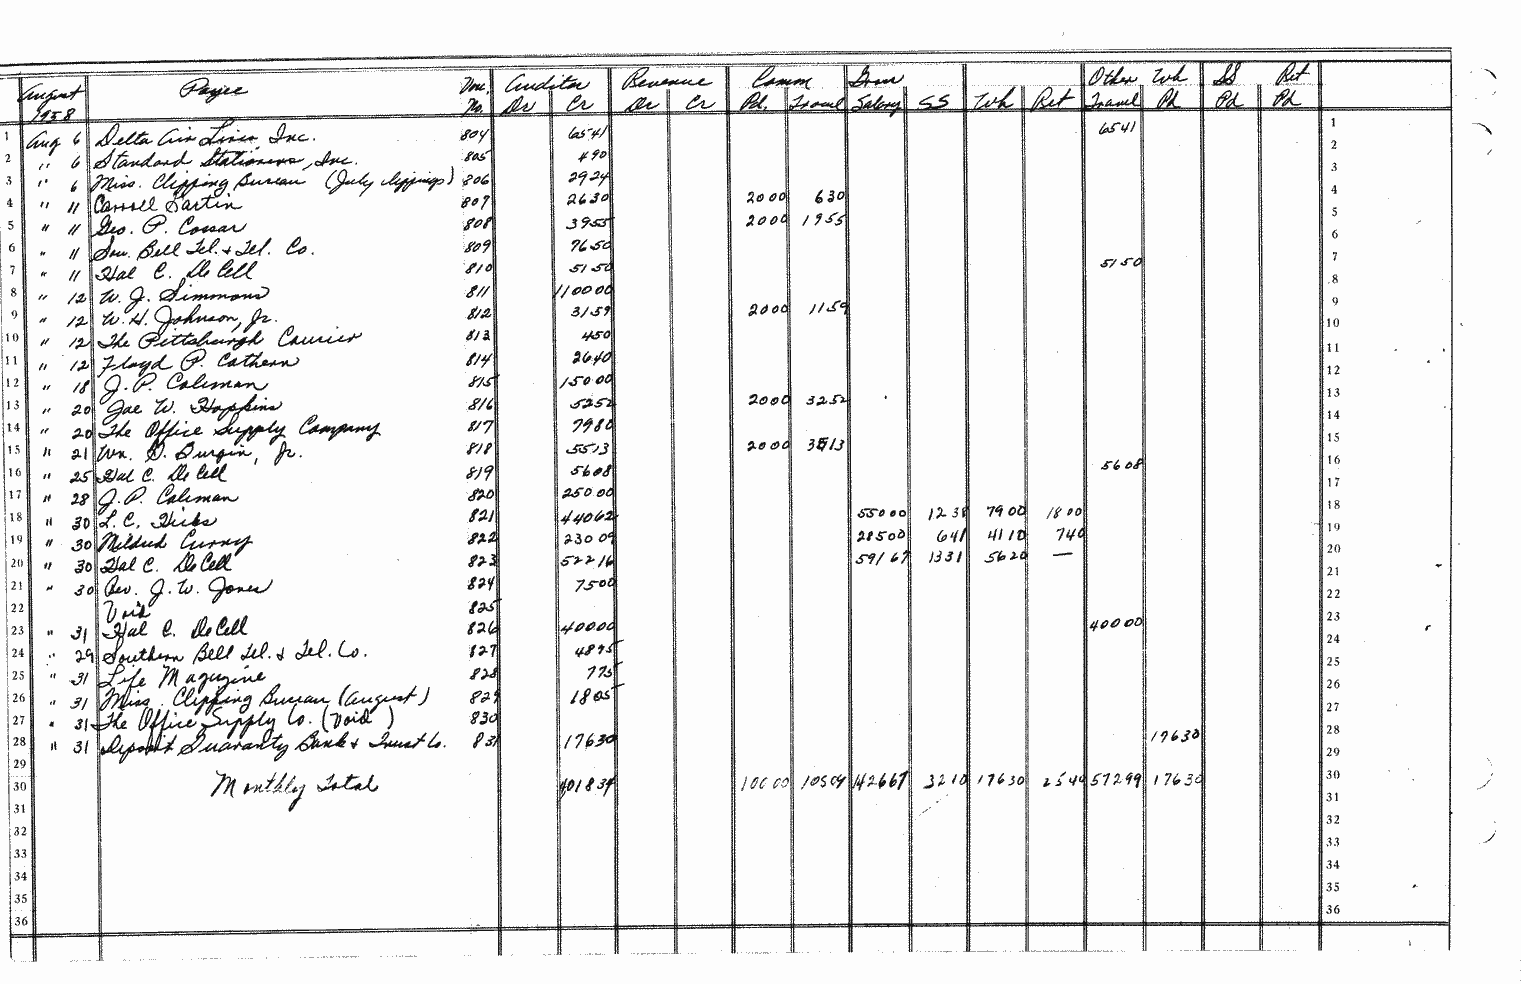 August 1958 Payee Vou. No. Auditor Dr Cr Revenue Dr Cr Comm Pd. Travel Gross Salary SS Wh Ret Other Travel Wh Pd SS Pd Ret Pd
1 Aug 6 Delta Air Lines, Inc. 804 6541 6541 1
2 " 6 Standard Stationers, Inc. 805 490 2
3 " 6 Miss. Clipping Bureau (July clippings) 806 2924 3
4 " 11 Carroll Gartin 807 2630 2000 630 4
5 " 11 Geo. P. Cossar 808 3955 2000 1955 5
6 " 11 Sou. Bell Tel. & Tel. Co. 809 7650 6
7 " 11 Hal C. DeCell 810 5150 5150 7
8 " 12 W. J. Simmons 811 110000 8
9 " 12 W. H. Johnson, Jr. 812 3159 2000 1159 9
10 " 12 The Pittsburgh Courier 813 450 10
11 " 12 Floyd P. Cathern 814 2640 11
12 " 18 J. P. Coleman 815 15000 12
13 " 20 Joe W. Hopkins 816 5252 2000 3252 13
14 " 20 The Office Supply Company 817 7980 14
15 " 21 Wm. D. Burgin, Jr. 818 5513 2000 3513 15
16 " 25 Hal C. DeCell 819 5608 5608 16
17 " 28 J. P. Coleman 820 25000 17
18 " 30 L. C. Hicks 821 44062 55000 1238 7900 1800 18
19 " 30 Mildred Curry 822 23009 28500 641 4110 740 19
20 " 30 Hal C. DeCell 823 52216 59167 1331 5620 — 20
21 " 30 Rev. J. W. Jones 824 7500 21
22 Void 825 22
23 " 31 Hal C. DeCell 826 40000 40000 23
24 " 29 Southern Bell Tel. & Tel. Co. 827 4895 24
25 " 31 Life Magazine 828 775 25
26 " 31 Miss. Clipping Bureau (August) 829 1805 26
27 " 31 The Office Supply Co. (Void) 830 27
28 " 31 Deposit Guaranty Bank & Trust Co. 831 17630 17630 28
29 29
30 Monthly Total 401834 10000 10509 142667 3210 17630 2540 57299 17630 30
31 31
32 32
33 33
34 34
35 35
36 36